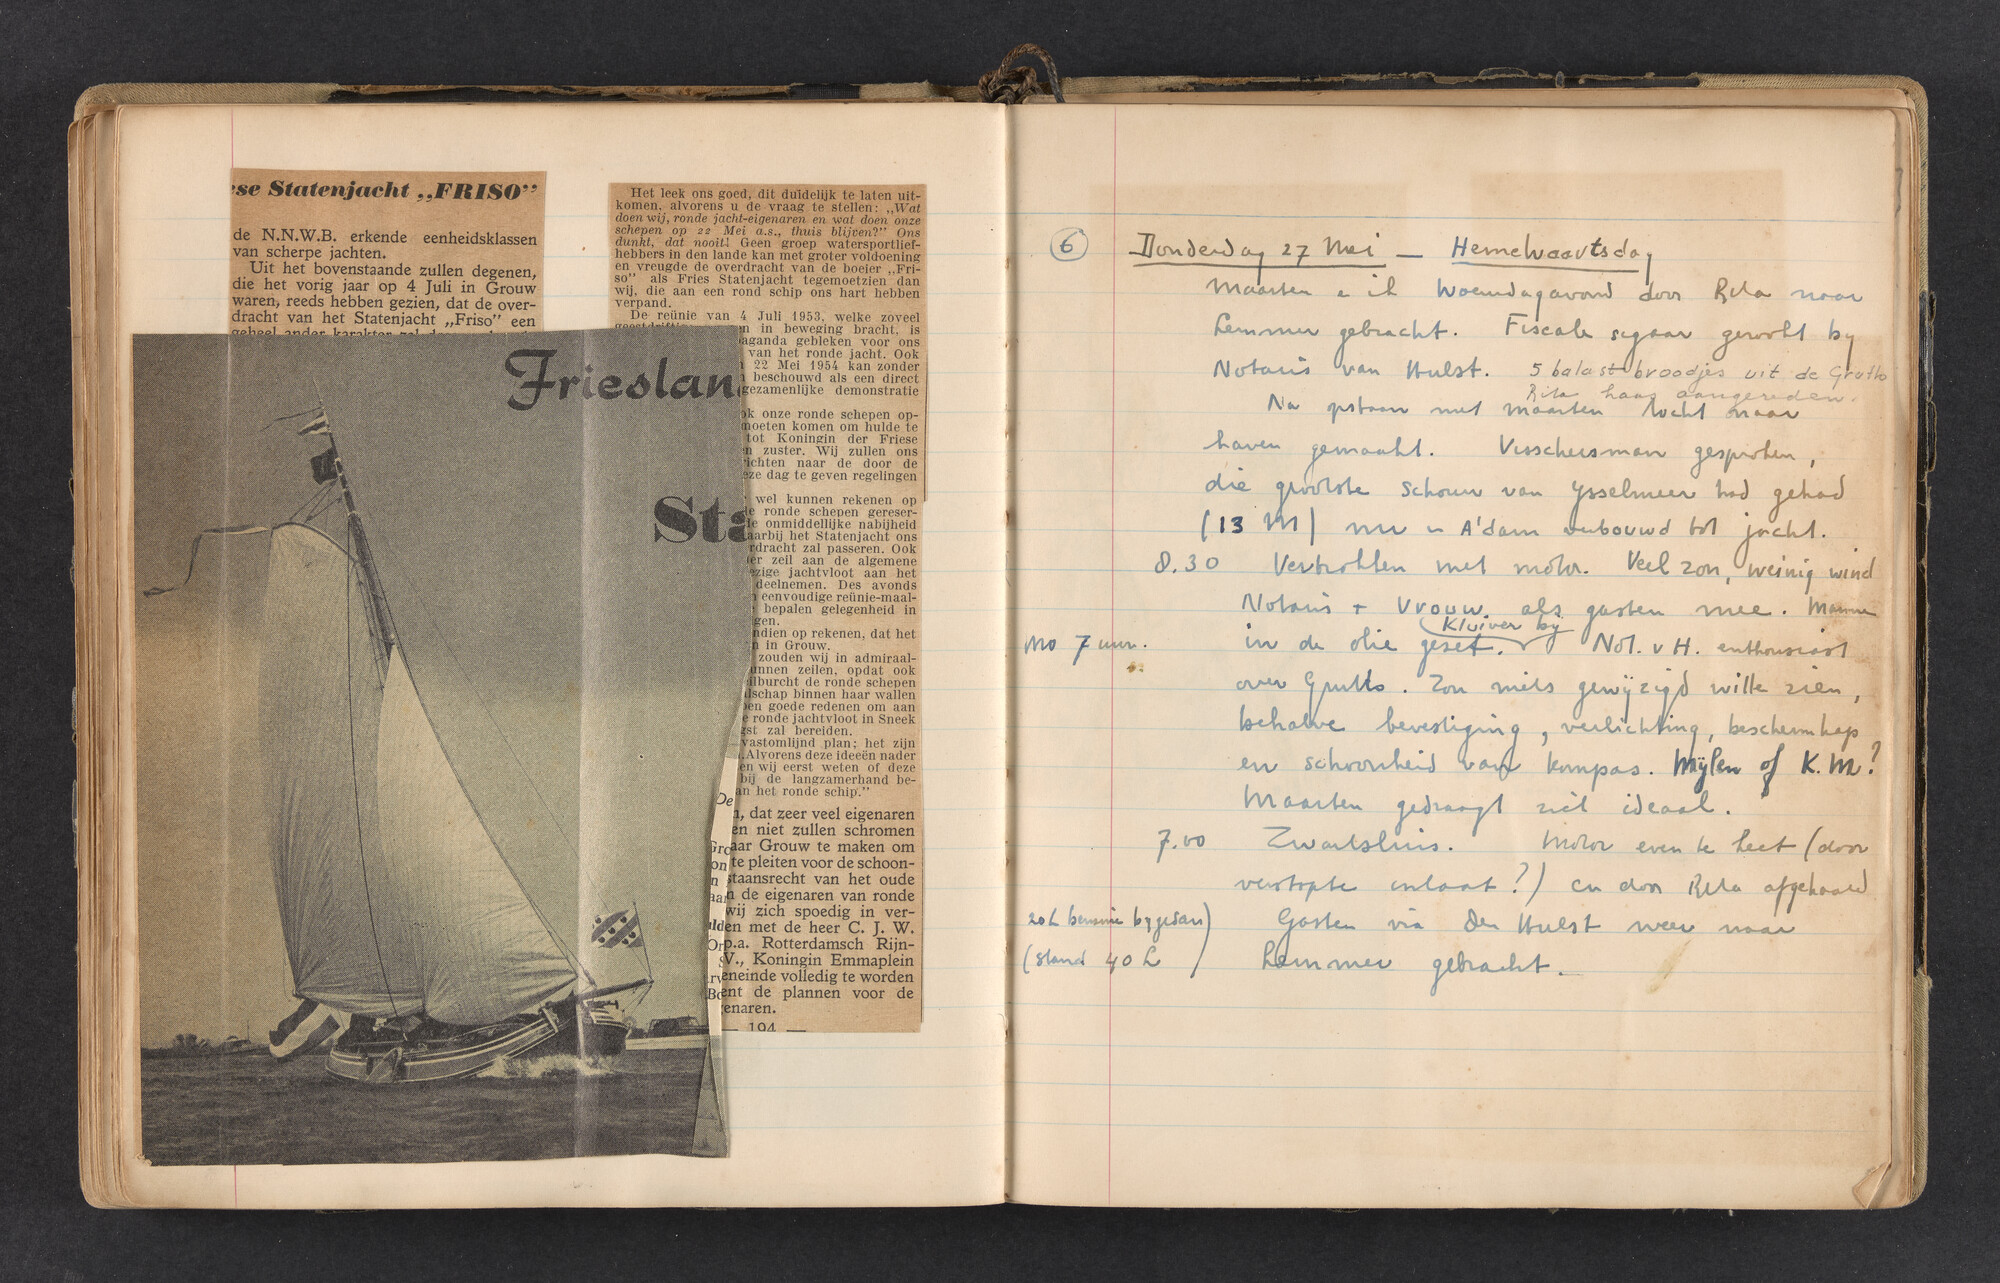 se Statenjacht „FRISO”
de N.N.W.B. erkende eenheidsklassen
van scherpe jachten.
Uit het bovenstaande zullen degenen,
die het vorig jaar op 4 Juli in Grouw
waren, reeds hebben gezien, dat de over-
dracht van het Statenjacht „Friso” een
geheel ander karakter zal
Frieslan
Sta
Het leek ons goed, dit duidelijk te laten uit-
komen, alvorens u de vraag te stellen: „Wat
doen wij, ronde jacht-eigenaren en wat doen onze
schepen op 22 Mei a.s., thuis blijven?” Ons
dunkt, dat nooit! Geen groep watersportlief-
hebbers in den lande kan met groter voldoening
en vreugde de overdracht van de boeier „Fri-
so” als Fries Statenjacht tegemoetzien dan
wij, die aan een rond schip ons hart hebben
verpand.
De reünie van 4 Juli 1953, welke zoveel
n in beweging bracht, is
aganda gebleken voor ons
van het ronde jacht. Ook
22 Mei 1954 kan zonder
beschouwd als een direct
gezamenlijke demonstratie
ok onze ronde schepen op-
moeten komen om hulde te
tot Koningin der Friese
n zuster. Wij zullen ons
ichten naar de door de
eze dag te geven regelingen
wel kunnen rekenen op
de ronde schepen gereser-
de onmiddellijke nabijheid
aarbij het Statenjacht ons
rdracht zal passeren. Ook
er zeil aan de algemene
ezige jachtvloot aan het
deelnemen. Des avonds
eenvoudige reünie-maal-
bepalen gelegenheid in
gen.
ndien op rekenen, dat het
n in Grouw.
zouden wij in admiraal-
unnen zeilen, opdat ook
lburcht de ronde schepen
dschap binnen haar wallen
en goede redenen om aan
e ronde jachtvloot in Sneek
gst zal bereiden.
vastomlijnd plan; het zijn
. Alvorens deze ideeën nader
en wij eerst weten of deze
bij de langzamerhand be-
an het ronde schip.”
De
n, dat zeer veel eigenaren
en niet zullen schromen
Gro aar Grouw te maken om
on te pleiten voor de schoon-
n staansrecht van het oude
aan de eigenaren van ronde
wij zich spoedig in ver-
lden met de heer C. J. W.
Or p.a. Rotterdamsch Rijn-
V., Koningin Emmaplein
eneinde volledig te worden
Be ent de plannen voor de
genaren.
— 194 —
6 Donderdag 27 Mei — Hemelvaartsdag
Maarten e ik Woensdagavond door Rita naar
Lemmer gebracht. Fiscale sigaar gerookt by
Notaris van Hulst. 5 balast broodjes uit de Grutto
Rita haas aangereden.
Na opstaan met Maarten tocht naar
haven gemaakt. Visscherman gesproken,
die grootste schouw van Ysselmeer had gehad
(13 M) nu in A'dam verbouwd tot jacht.
8.30 Vertrokken met motor. Veel zon, weinig wind
Notaris + Vrouw als gasten mee.
Kluiver by
NO 7 uur. in de olie gezet. Not. v H. enthousiast
over Grutto. Zou niets gewyzigd wille zien,
behalve bevestiging, verlichting, beschermkap
en schoonheid van kompas. Mylen of K.M?
Maarten gedraagt zich ideaal.
7.00 Zwartsluis. Motor even te heet (door
verstopte inlaat?) en door Rita afgehaald
20 L benzine bygedaan) Gasten via Den Hulst weer naar
(stand 40 L) Lemmer gebracht.